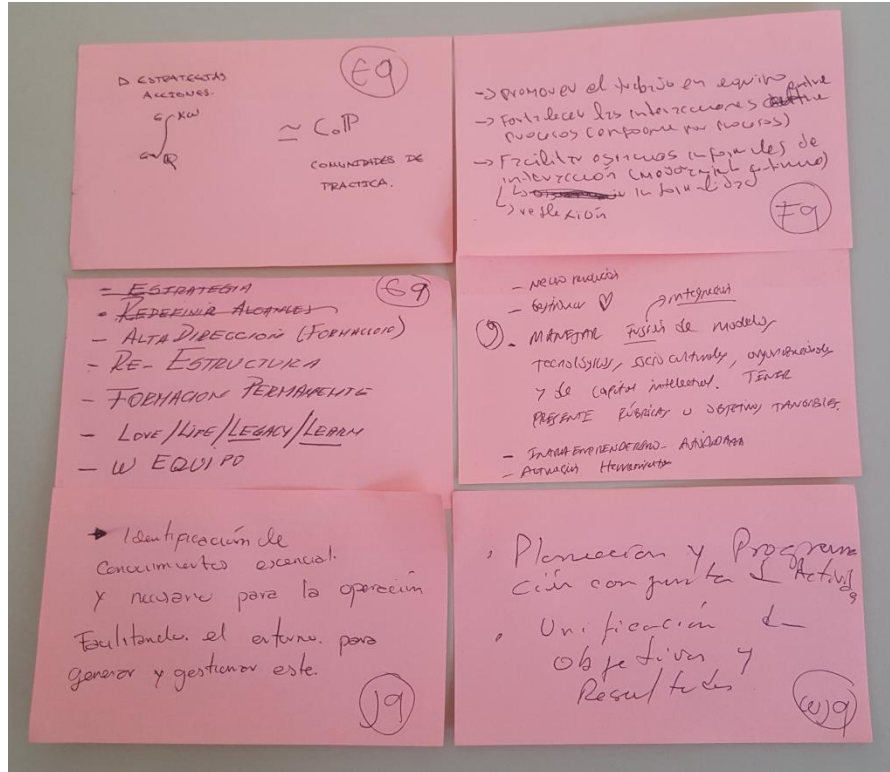 ▷ ESTRATEGIAS
ACCIONES.
E9
G KW
≃ CoP
COMUNIDADES DE
PRACTICA.
→ promover el trabajo en equipo
→ Fortalecer las interacciones entre
procesos (compodne por procesos)
→ Facilitar espacios informales de
interacción
↳ informalidad
↳ reflexión
F9
- ESTRATEGIA
- REDEFINIR ALCANCES
- ALTA DIRECCIÓN (FORMACIÓN)
- RE-ESTRUCTURA
- FORMACION PERMANENTE
- LOVE/LIFE/LEGACY/LEARN
- W EQUIPO
G9
- Gestionar ♡
9 - MANEJAR Fusión de modelos → integración
Tecnológicos, socio culturales, organizacionales
y de capital intelectual. TENER
PRESENTE RÚBRICAS U OBJETIVOS TANGIBLES.
→ Identificación de
Conocimientos escencial.
Y necesario para la operación
Facilitando. el entorno. para
generar y gestionar este.
J9
• Planeación y Programa
ción conjunta d Activid
• Unificación d
Objetivos y
Resultados
W9